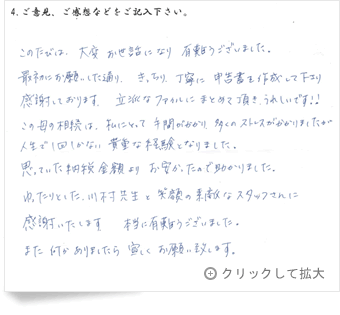 4.ご意見、ご感想などをご記入下さい。
このたびは、大変お世話になり有難うございました。
最初にお願いした通り、きっちり、丁寧に申告書を作成して下さり
感謝しております。立派なファイルにまとめて頂き、うれしいです!!
この母の相続は、私にとって手間がかかり、多くのストレスがかかりましたが
人生で1回しかない貴重な経験となりました。
思っていた納税金額よりお安かったので助かりました。
ゆったりとした川村先生と笑顔の素敵なスタッフさんに
感謝いたします 本当に有難うございました。
また何かありましたら宜しくお願い致します。
クリックして拡大